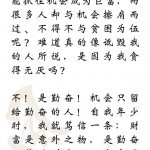 能抓住机会成为巨富，而
很多人却与机会擦肩而
过、不得不与贫困为伍
呢？难道真的像诋毁我
的人所说，是因为我贪
得无厌吗？
不！是勤奋！机会只留
给勤奋的人！自我年少
时，我就笃信一条：财
富是意外之物，是勤奋